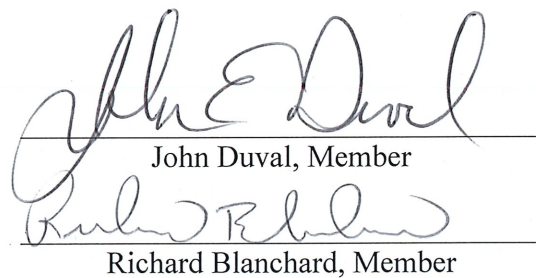 John E Duval
John Duval, Member
Richard Blanchard
Richard Blanchard, Member